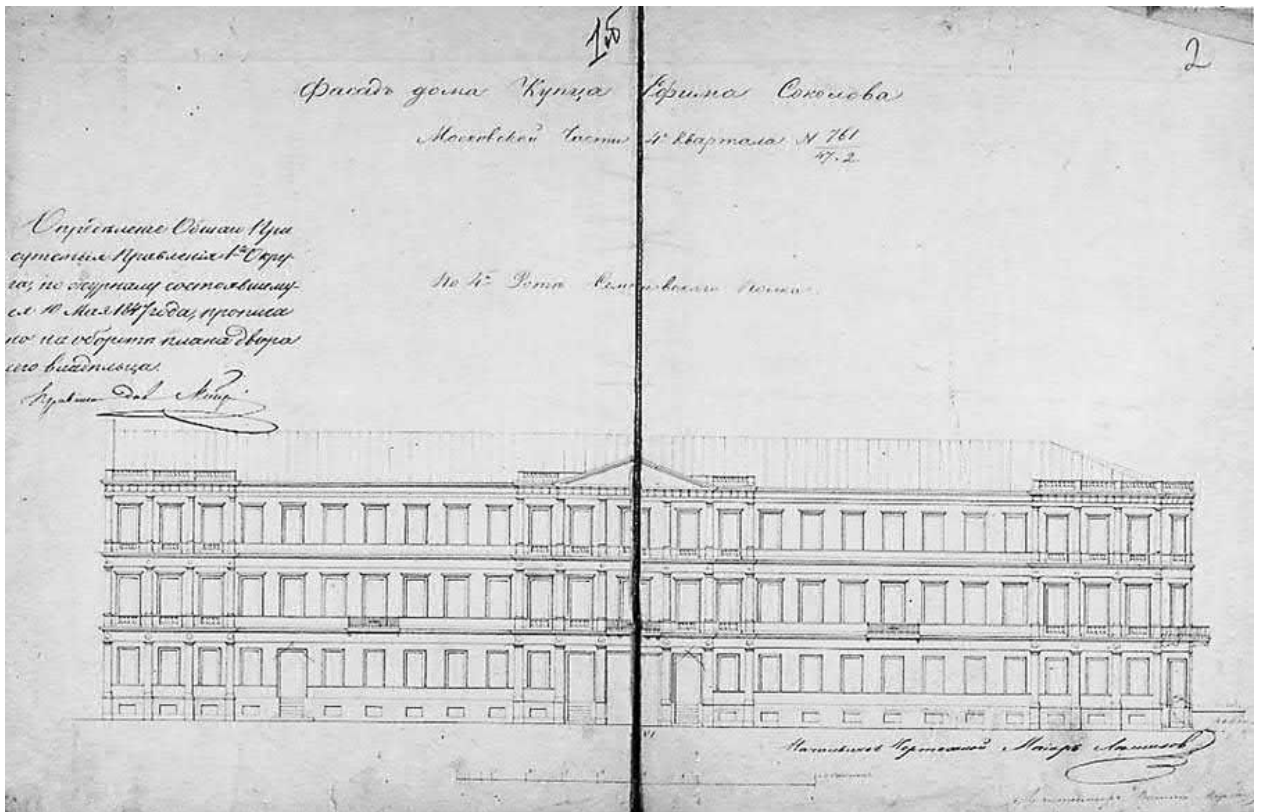 1об
2
Фасадъ дома Купца Ефима Соколова
Московской Части 4го Квартала N 761
47.2
Определенiе Общаго При
сутствiя Правленiя 1го Окру-
га, по журналу состоявшему-
ся 10 Мая 1847 года, прописа
но на оборотѣ плана двора
сего владѣльца.
По 4й Ротѣ Семеновскаго Полка.
Начальникъ Чертежной Маiоръ